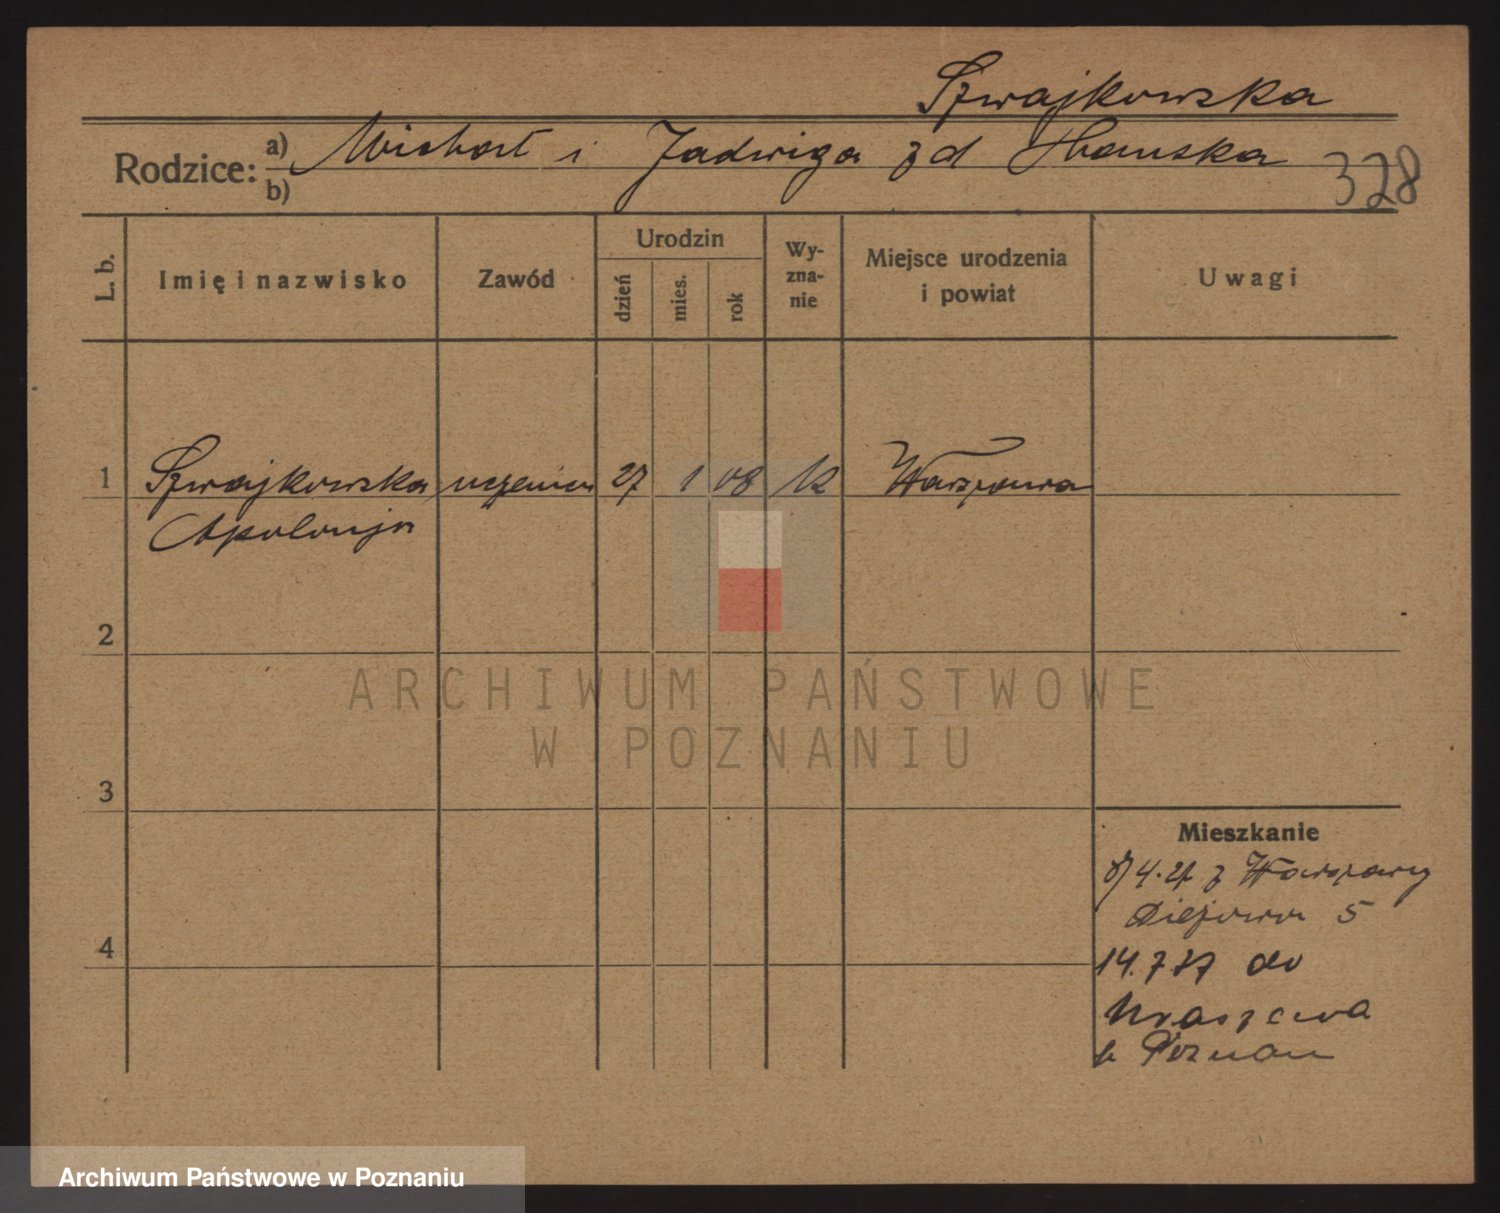 Szwajkowska
Rodzice: a) Michał i Jadwiga zd
b)
328
L. b.
Imię i nazwisko
Zawód
Urodzin
dzień
mies.
rok
Wy-
zna-
nie
Miejsce urodzenia
i powiat
Uwagi
1 Szwajkowska uczenica 27 1 08 k Warszawa
Apolonja
2
ARCHIWUM PAŃSTWOWE
W POZNANIU
3
Mieszkanie
z Warszawy
5
4
14.7 27 do
Kraszewa
Poznan
Archiwum Państwowe w Poznaniu